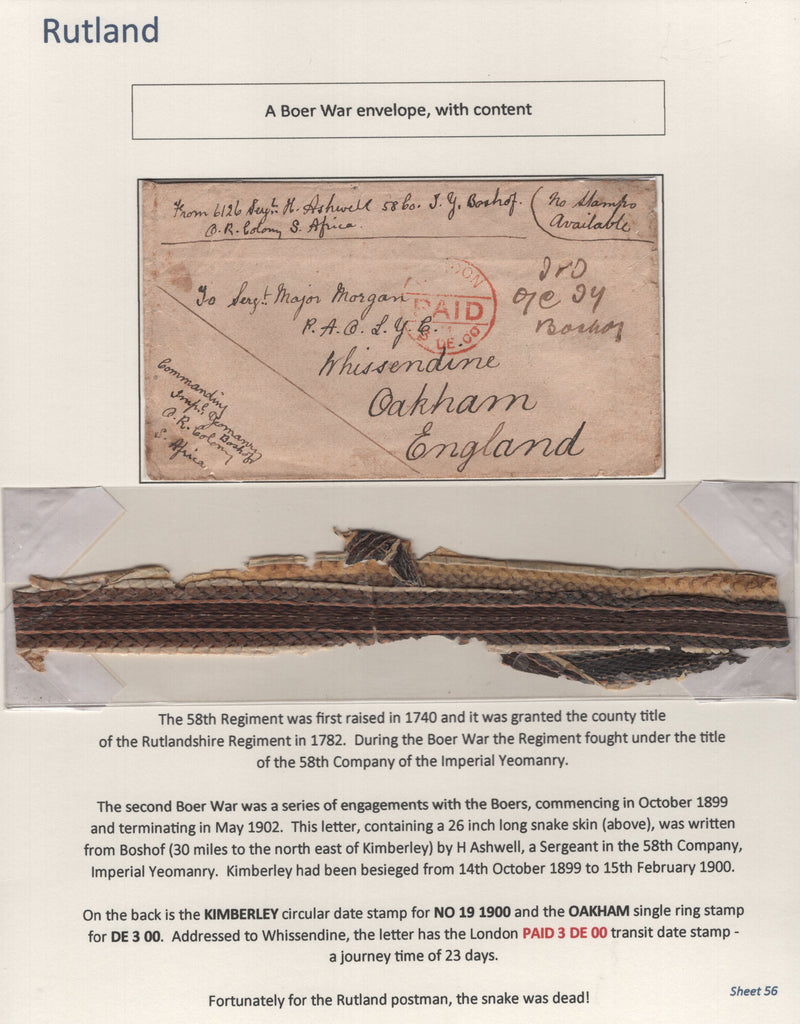 Rutland
A Boer War envelope, with content
From 6126 Sergt. H. Ashwell 58 Co. I. Y. Boshof.
O. R. Colony S. Africa.
(No Stamps
Available
To Sergt. Major Morgan
LONDON
PAID
3 DE 00
Boshof
R. A. O. L. Y. C.
Whissendine
Oakham
England
Commanding
Impl. Yeomanry
Boshof
O. R. Colony
S. Africa
The 58th Regiment was first raised in 1740 and it was granted the county title
of the Rutlandshire Regiment in 1782. During the Boer War the Regiment fought under the title
of the 58th Company of the Imperial Yeomanry.
The second Boer War was a series of engagements with the Boers, commencing in October 1899
and terminating in May 1902. This letter, containing a 26 inch long snake skin (above), was written
from Boshof (30 miles to the north east of Kimberley) by H Ashwell, a Sergeant in the 58th Company,
Imperial Yeomanry. Kimberley had been besieged from 14th October 1899 to 15th February 1900.
On the back is the KIMBERLEY circular date stamp for NO 19 1900 and the OAKHAM single ring stamp
for DE 3 00. Addressed to Whissendine, the letter has the London PAID 3 DE 00 transit date stamp -
a journey time of 23 days.
Fortunately for the Rutland postman, the snake was dead!
Sheet 56